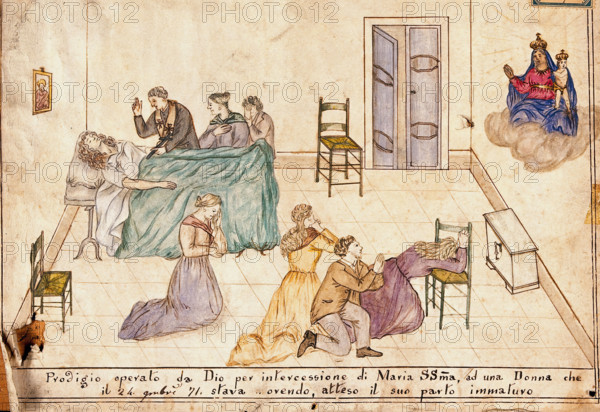 Prodigio operato da Dio per intercessione di Maria SSma, ad una Donna che
il 24. 71. stava orendo, atteso il suo parto immaturo